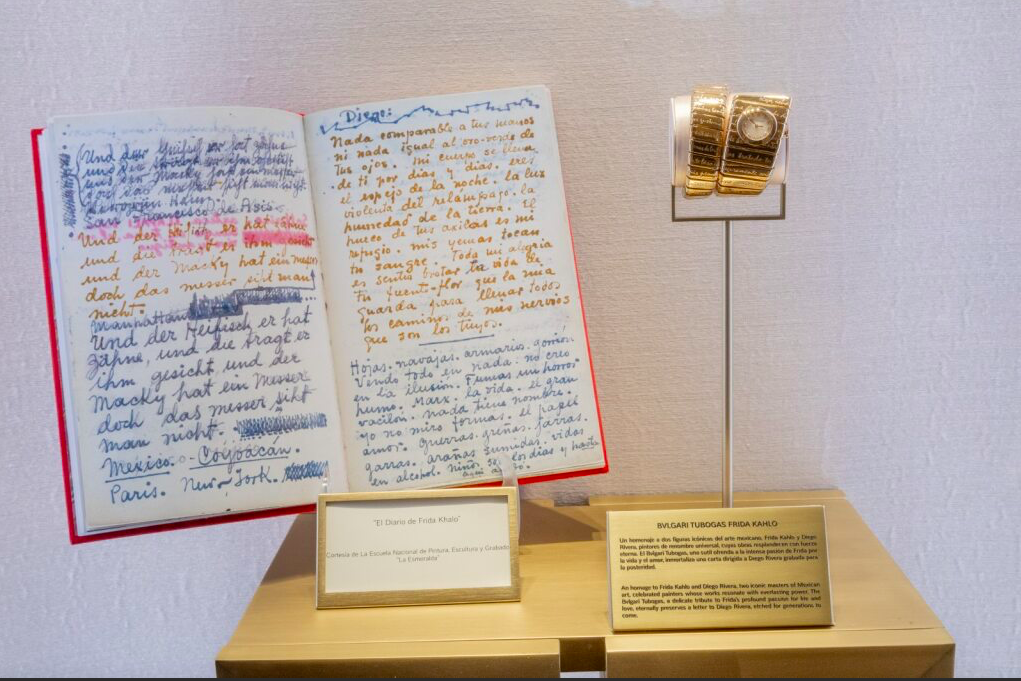 (Und der Haifisch er hat zähne
und
und der Macky hat ein messer
doch das messer sieht man nicht.
San Francisco de Asis
Und der er hat zähne
und die trägt er ihm gesicht
und der Macky hat ein messer
doch das messer siht man
nicht.
Manhattan
Und der Heifisch er hat
zähne, und die tragt er
ihm gesicht, und der
Macky hat ein Messer
doch das messer siht
man nicht.
Mexico. Coyoacán.
Paris. New-York.
Diego:
Nada comparable a tus manos
ni nada igual al oro-verde de
tus ojos. mi cuerpo se llena
de ti por días y días. eres
el espejo de la noche. la luz
violenta del relámpago. la
humedad de la tierra. El
hueco de tus axilas es mi
refugio. mis yemas tocan
tu sangre. Toda mi alegría
es sentir brotar tu vida de
tu fuente-flor que la mia
guarda para llenar todos
los caminos de mis nervios
que son los tuyos.
Hojas. navajas. armario. gorrión
Vendo todo en nada. no creo
en la ilusión. Fumas un horror
humo. Marx. la vida. el gran
vacilón. nada tiene nombre.
yo no miro formas. el papel
amor. guerras. greñas. jarras.
garras. arañas sumidas. vidas
en alcohol. niños son los dias y hasta
aquí
"El Diario de Frida Khalo"
Cortesía de La Escuela Nacional de Pintura, Escultura y Grabado
"La Esmeralda"
BVLGARI TUBOGAS FRIDA KAHLO
Un homenaje a dos figuras icónicas del arte mexicano, Frida Kahlo y Diego
Rivera, pintores de renombre universal, cuyas obras resplandecen con fuerza
eterna. El Bvlgari Tubogas, una sutil ofrenda a la intensa pasión de Frida por
la vida y el amor, inmortaliza una carta dirigida a Diego Rivera grabada para
la posteridad.
An homage to Frida Kahlo and Diego Rivera, two iconic masters of Mexican
art, celebrated painters whose works resonate with everlasting power. The
Bvlgari Tubogas, a delicate tribute to Frida's profound passion for life and
love, eternally preserves a letter to Diego Rivera, etched for generations to
come.